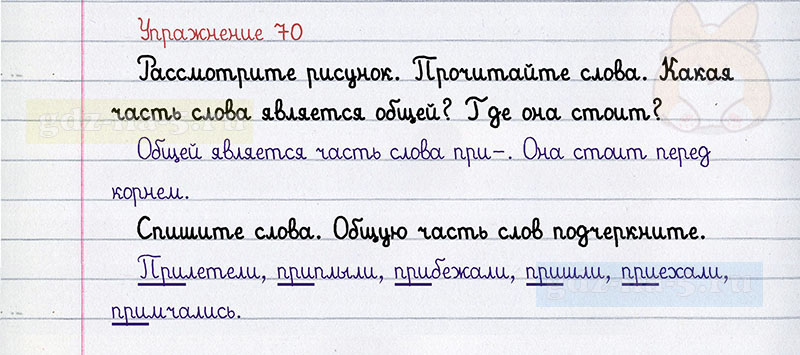 Упражнение 70
Рассмотрите рисунок. Прочитайте слова. Какая
часть слова является общей? Где она стоит?
Общей является часть слова при-. Она стоит перед
корнем.
Спишите слова. Общую часть слов подчеркните.
Прилетели, приплыли, прибежали, пришли, приехали,
примчались.